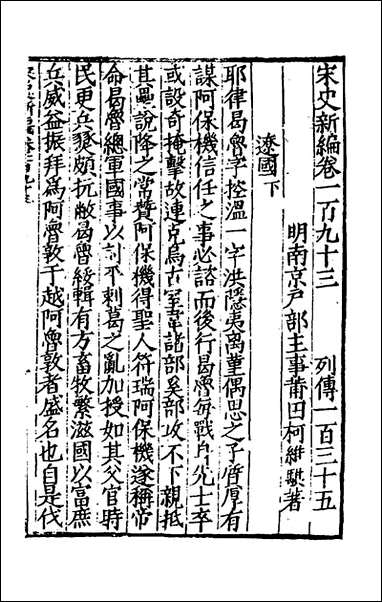 宋史新編卷一百九十三　列傳一百三十五
明南京戶部主事莆田柯維騏著
遼國下
耶律曷魯字控溫一字洪隱夷离菫偶思之子質厚有
謀阿保機信任之事必諮而後行曷魯每戰身先士卒
或設奇掩擊故連克烏古室韋諸部奚部攻不下親抵
其壘說降之常贊阿保機得聖人符瑞阿保機遂稱帝
命曷魯總軍國事以討不剌葛之亂加授如其父官時
民更兵燹頗抗敝曷魯綏輯有方畜牧繁滋國以富庶
兵威益振拜爲阿魯敦于越阿魯敦者盛名也自是伐